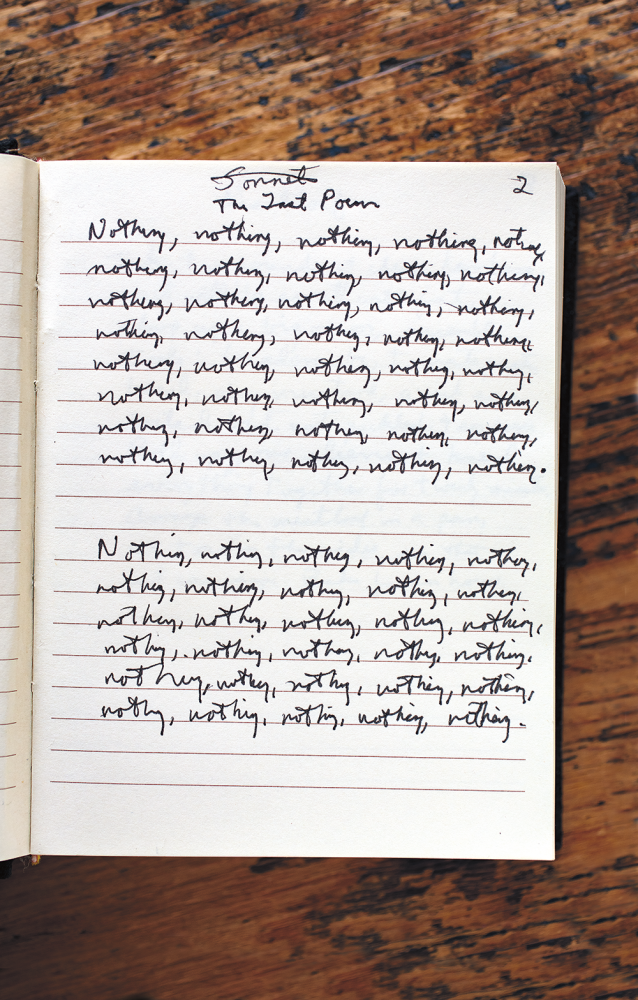 Sonnet
The Last Poem
2
Nothing, nothing, nothing, nothing, nothing,
nothing, nothing, nothing, nothing, nothing,
nothing, nothing, nothing, nothing, nothing,
nothing, nothing, nothing, nothing, nothing,
nothing, nothing, nothing, nothing, nothing,
nothing, nothing, nothing, nothing, nothing,
nothing, nothing, nothing, nothing, nothing,
nothing, nothing, nothing, nothing, nothing.
Nothing, nothing, nothing, nothing, nothing,
nothing, nothing, nothing, nothing, nothing,
nothing, nothing, nothing, nothing, nothing,
nothing, nothing, nothing, nothing, nothing,
nothing, nothing, nothing, nothing, nothing,
nothing, nothing, nothing, nothing, nothing.